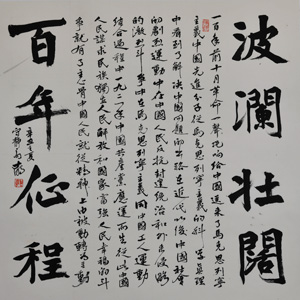 波瀾壮闊
一百年前十月革命一聲炮响給中國送来了馬克思列寧
主義中國先進分子從馬克思列寧主義的科学真理
中看到了解决中國問題的出路在近代以後中國社會
的劇烈運動中在中國人民反抗封建統治和外来侵略
的激烈斗争中在馬克思列寧主義同中國工人運動
结合過程中一九二一年中國共產黨應運而生從此中國
人民謀求民族獨立人民解放和國家富强人民幸福的斗
争就有了主心骨中國人民就從精神上由被動轉為主動
百年征程
辛丑夏